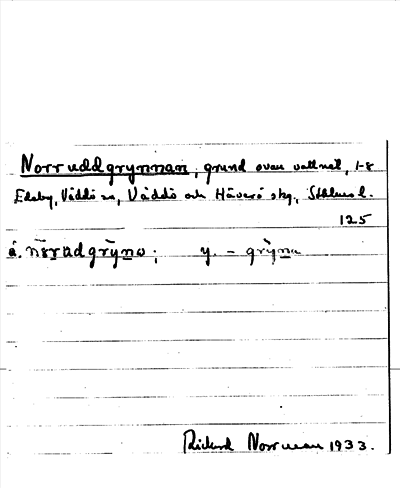 Norruddgrynnan, grund ovan vattnet, 1-8
Edeby, Väddö sn, Väddö och Häverö skg., Sthlms l.
125
ä. nörudgrỳna; y. – grỳna
Rickard Norrman 1933.